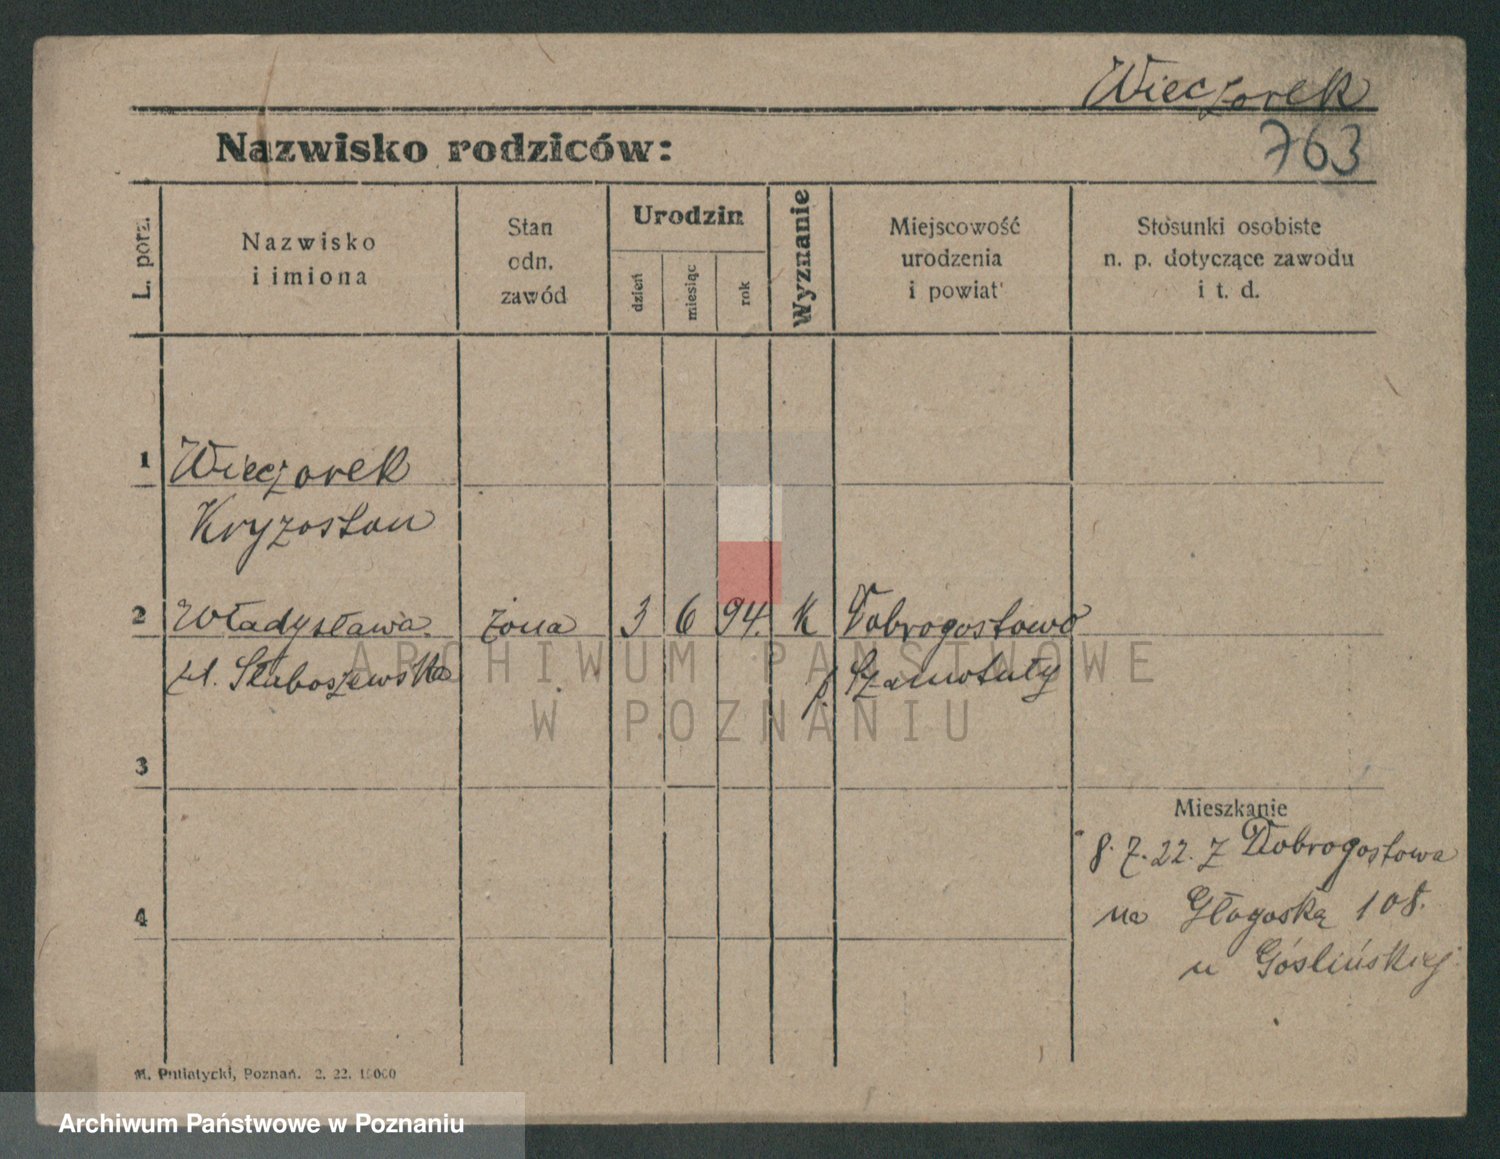 Wieczorek
Nazwisko rodziców:
763
L. porz.
Nazwisko
i imiona
Stan
odn.
zawód
Urodzin
dzień
miesiąc
rok
Wyznanie
Miejscowość
urodzenia
i powiat
Stosunki osobiste
n. p. dotyczące zawodu
i t. d.
1 Wieczorek
Kryzostan
2 Władysława żona 3 6 94. K Dobrogostowo
z d. Słaboszewska p. Szamotuły
ARCHIWUM PAŃSTWOWE
W POZNANIU
3
Mieszkanie
8. 7. 22. z Dobrogostowa
na Głogoską 108.
u Góslińskiej
4
M. Putiatycki, Poznań. 2. 22. 15000
Archiwum Państwowe w Poznaniu